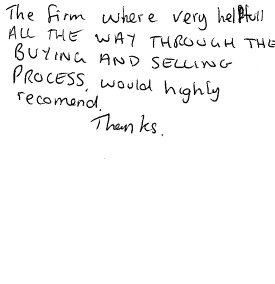 The firm where very helpfull
ALL THE WAY THROUGH THE
BUYING AND SELLING
PROCESS, would highly
recomend.
Thanks.